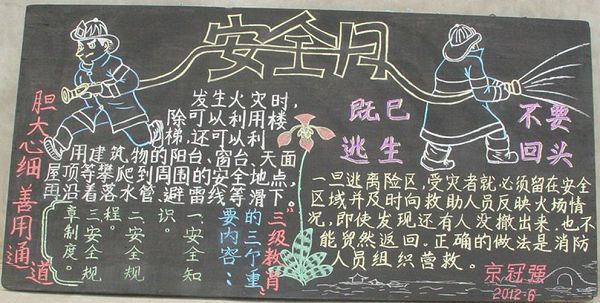 安全月
胆大心细 善用通道
发生火灾时，
除可以利用楼
梯，还可以利
用建筑物的阳台、窗台、天面
屋顶等攀爬到周围的安全地点，
再沿着落水管、避雷线等滑下。
"三级教育"
的三个重
要内容：
一、安全知
识。
二安全规
程。
三安全规
章制度。
既已
逃生
不要
回头
一旦逃离险区，受灾者就必须留在安全
区域并及时向救助人员反映火场情
况，即使发现还有人没撤出来，也不
能贸然返回。正确的做法是消防
人员组织营救。
京冠强
2012.6